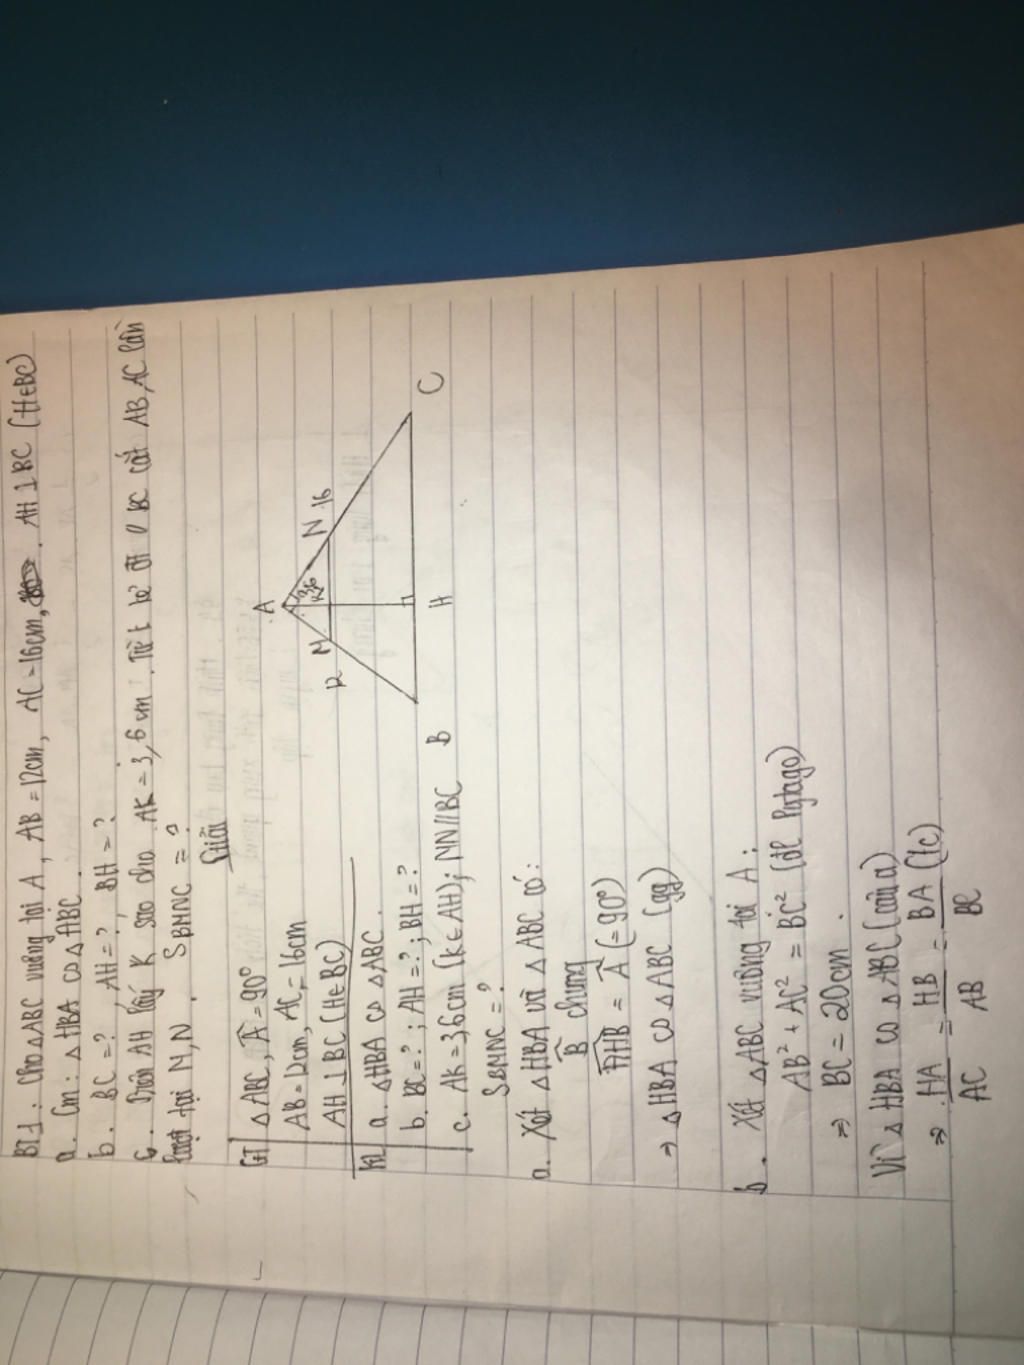 BT1: Cho △ABC vuông tại A, AB = 12cm, AC = 16cm, AH ⊥ BC (H∈BC)
a. Cm: △HBA ∽ △ABC.
b. BC = ? AH = ? BH = ?
c. Trên AH lấy K sao cho AK = 3,6 cm. Từ K kẻ đt // BC cắt AB, AC lần
lượt tại M, N. SBMNC = ?
Giải
GT △ABC, A = 90°
AB = 12cm, AC = 16cm
AH ⊥ BC (H∈BC)
KL a. △HBA ∽ △ABC.
b. BC = ?; AH = ?; BH = ?
c. AK = 3,6cm (K∈AH); MN//BC
SBMNC = ?
A
M
N
12
16
3,6
K
B
H
C
a. Xét △HBA và △ABC có:
B chung
AHB = A (= 90°)
⇒ △HBA ∽ △ABC (gg)
b. Xét △ABC vuông tại A:
AB² + AC² = BC² (đl Pytago)
⇒ BC = 20cm.
Vì △HBA ∽ △ABC (câu a)
⇒ HA/AC = HB/AB = BA/BC (tc)